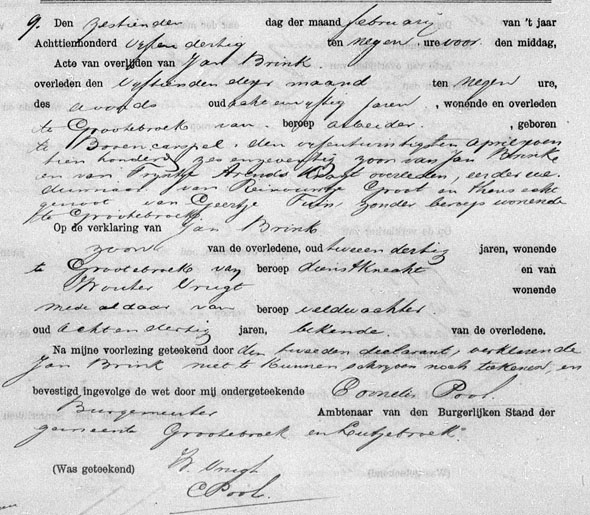 9. Den zestienden dag der maand februarij van 't jaar
Achttienhonderd vyfendertig ten negen, ure voor. den middag,
Acte van overlijden van Jan Brink.
overleden den vyftienden dezer maand ten negen ure,
des avonds oud achtenvyftig jaren, wonende en overleden
te Grootebroek van beroep arbeider. , geboren
te Bovencarspel, den vyfentwintigsten april zeven
tien honderd zes en zeventig zoon van Jan Brink
en van Tryntje Arends overleden, eerder we
duwnaar van Reinoutje Groot en thans echt
genoot van Geertje Tuin zonder beroep wonende
te Grootebroek.
Op de verklaring van Jan Brink
zoon van de overledene, oud tweeendertig jaren, wonende
te Grootebroek van beroep dienstknecht en van
Wouter Vrugt wonende
mede aldaar van beroep veldwachter.
oud achtendertig jaren, bekende. van de overledene.
Na mijne voorlezing geteekend door den tweeden declarant, verklarende
Jan Brink niet te kunnen schryven noch tekenen, en
bevestigd ingevolge de wet door mij ondergeteekende Cornelis Pool.
Burgemeester Ambtenaar van den Burgerlijken Stand der
gemeente Grootebroek en Lutjebroek.
(Was geteekend) W. Vrugt
C Pool.